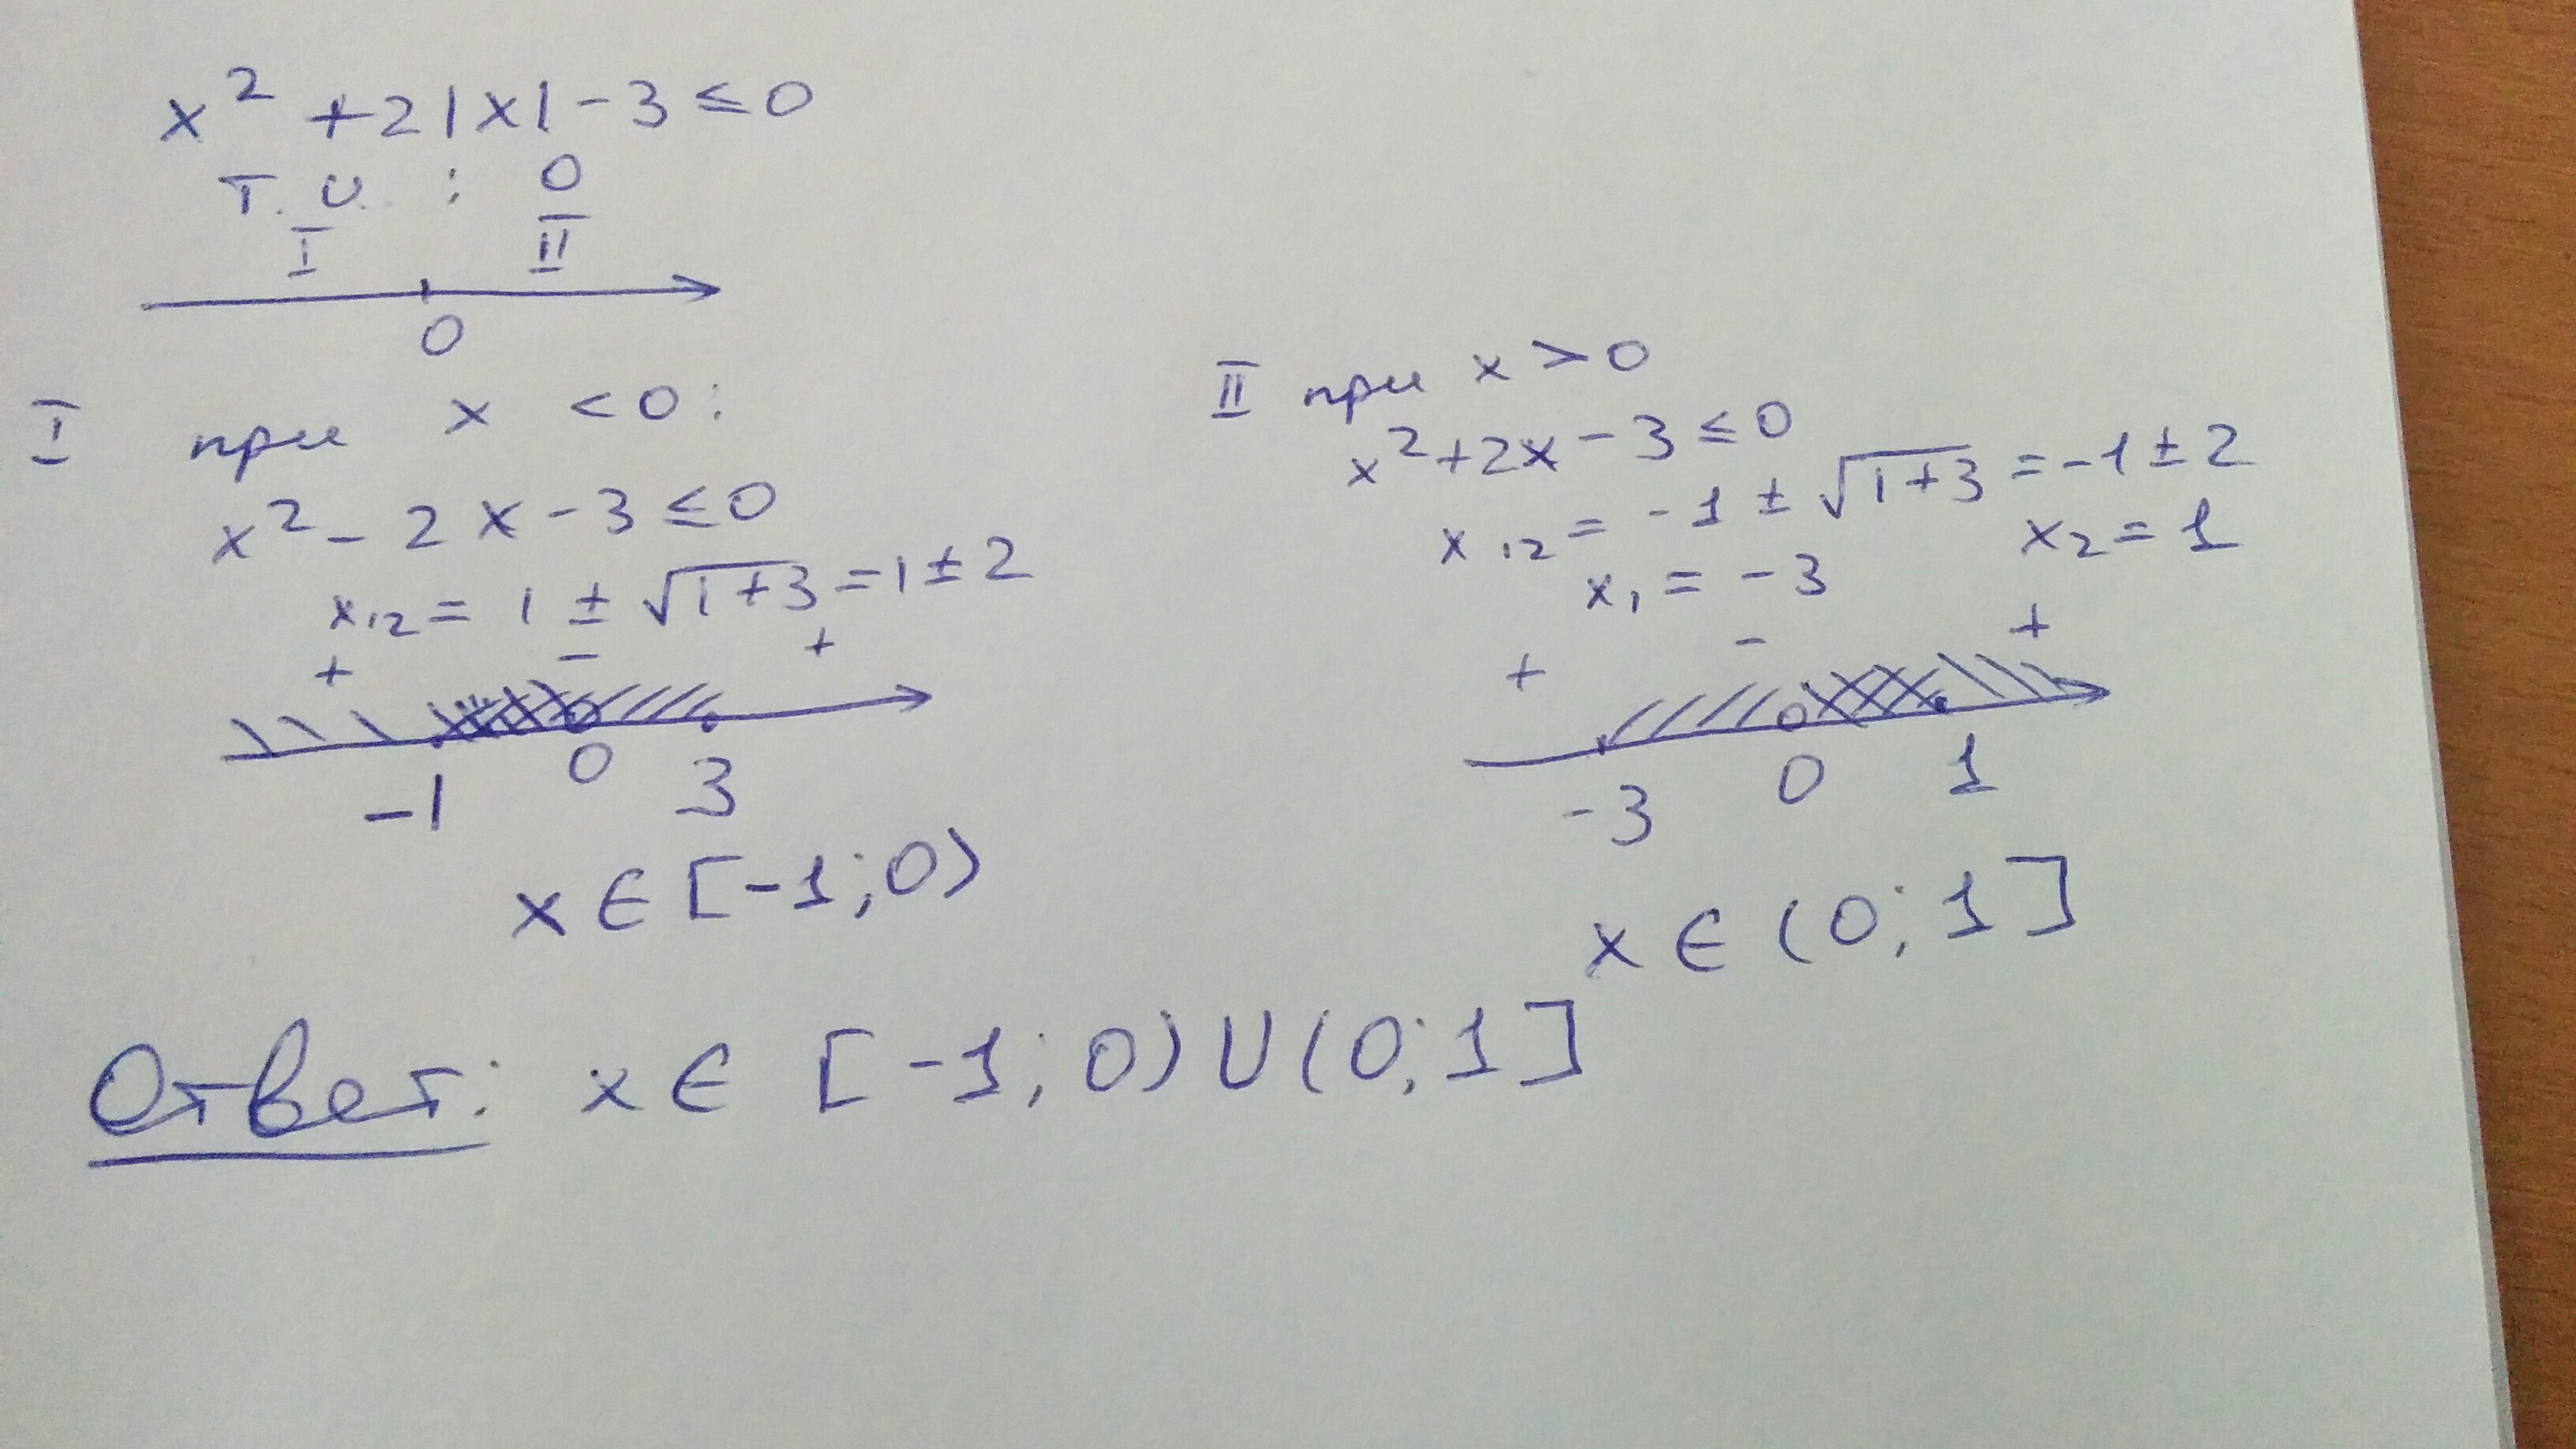 x² + 2|x| - 3 ≤ 0
Т. И. : 0
I II
0
I при x < 0:
x² - 2x - 3 ≤ 0
x₁₂ = 1 ± √(1+3) = 1 ± 2
+ - +
-1 0 3
x ∈ [-1; 0)
II при x > 0
x² + 2x - 3 ≤ 0
x₁₂ = -1 ± √(1+3) = -1 ± 2
x₁ = -3 x₂ = 1
+ - +
-3 0 1
x ∈ (0; 1]
Ответ: x ∈ [-1; 0) ∪ (0; 1]